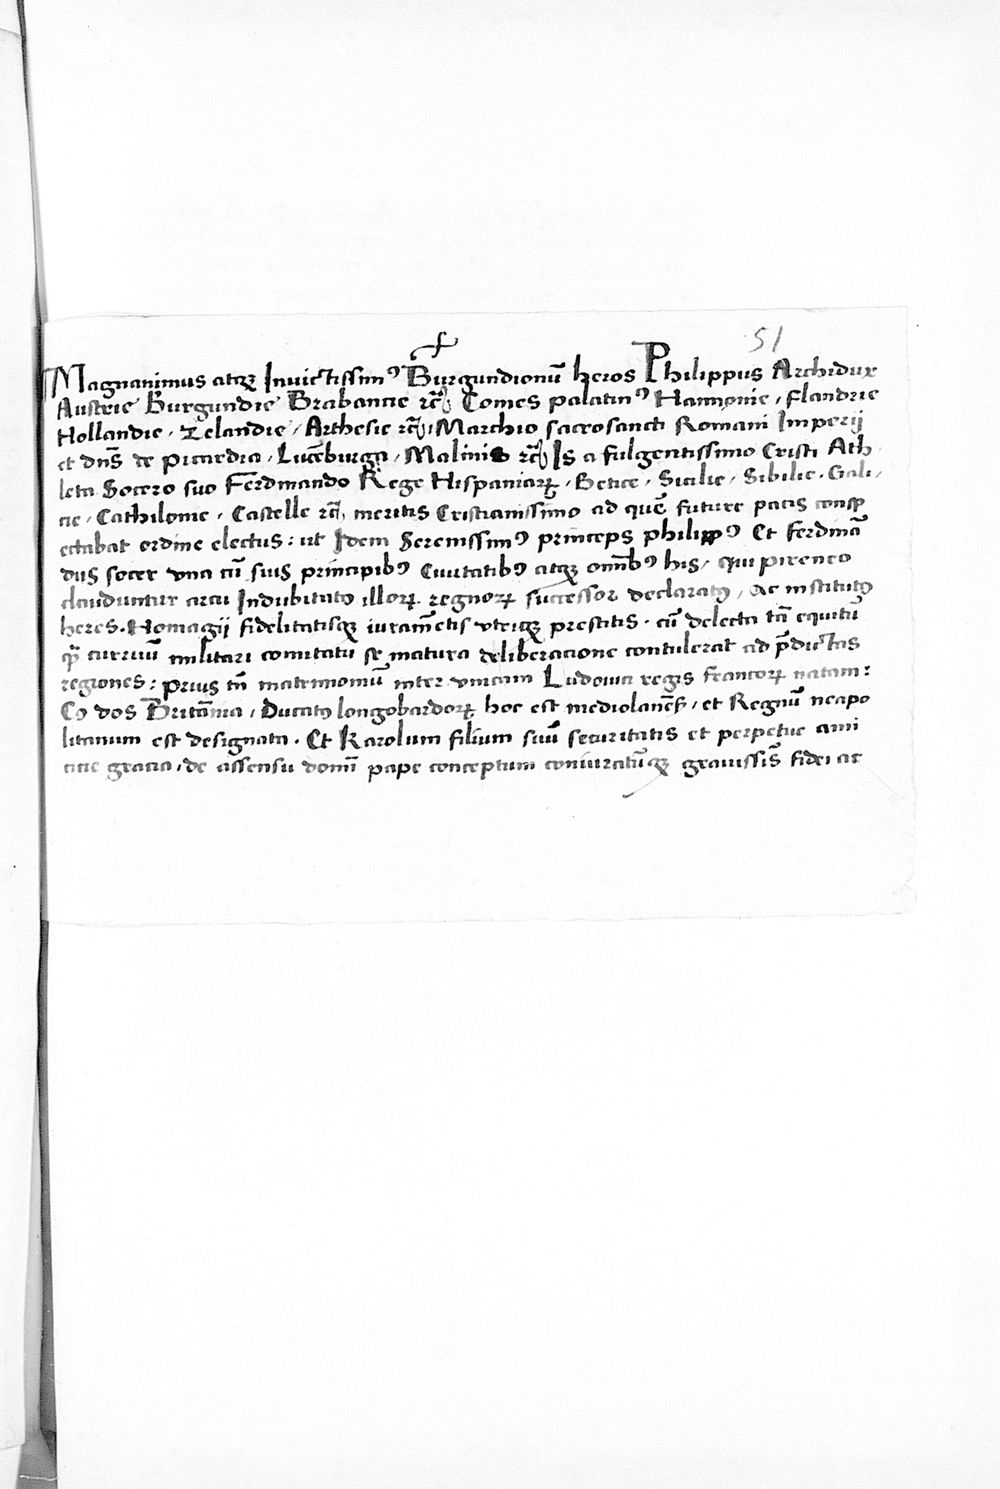 51
Magnanimus atqꝫ Inuictissimꝰ Burgundionū heros Philippus Archidux
Austrie Burgundie Brabantie ⁊c̄ Comes palatinꝰ Hannonie, Flandrie
Hollandie, Zelandie, Arthesie ⁊c̄, Marchio sacrosancti Romani Imperij
et dn̄s de Picardia, Lucēburga, Malinis ⁊c̄ Is a fulgentissimo Cristi Ath
leta Socero suo Ferdinando Rege Hispaniaꝝ, Betice, Sicilie, Sibilie, Gali
cie, Cathilonie, Castelle ⁊c̄, meritis Cristianissimo ad quē future pacis consp
ectabat ordine electus: ut Idem Serenissimꝰ princeps philippꝰ Et Ferdinā
dus socer vna cū suis principibꝰ Ciuitatibꝰ atqꝫ omībꝰ his, qui pireneo
clauduntur arcu Indubitatꝰ illoꝝ regnoꝝ successor declaratꝰ, Ac institutꝰ
heres. Homagij fidelitatisqꝫ iuramētis vtriqꝫ prestitis. cū delecta tā equitū
ꝙ̄ curruū militari comitatu se matura deliberacione contulerat ad p̄dictas
regiones: prius tn̄ matrimoniū inter vnicam Ludouici regis francoꝝ natam:
Cꝰ dos Britānia, Ducatꝰ longobardoꝝ hoc est mediolanēs, et Regnū neapo
litanum est designata. Et Karolum filium suū securitatis et perpetue ami
citie gracia, de assensu domī pape conceptum coniuratūqꝫ grauissīs fidei ac